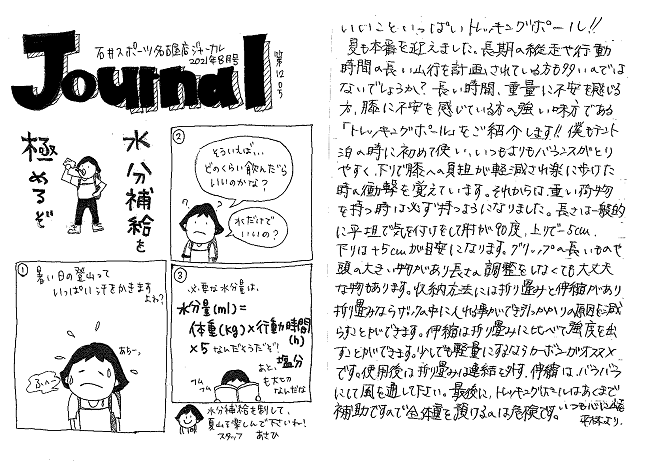 石井スポーツ名古屋店ジャーナル
2021年8月号
Journal
第120号
水分補給を
極めるぞ
①
暑い日の登山って
いっぱい汗をかきます
よね?
あちー。
ふぅー
②
そういえば…
どのくらい飲んだら
いいのかな?
水だけで
いいの?
③
必要な水分量は、
水分量(ml)=
体重(kg)×行動時間
(h)
×5 なんだそうだぞ!
あと、塩分
も大切
なんだな
フムフム
水分補給を制して、
夏山を楽しんで下さいね!
スタッフ あさひ
いいこといっぱいトレッキングポール!!
夏も本番を迎えました。長期の縦走や行動
時間の長い山行を計画されている方も多いのでは
ないでしょうか?長い時間、重量に不安を感じる
方、膝に不安を感じている方の強い味方である
「トレッキングポール」をご紹介します!!僕もテント
泊の時に初めて使い、いつもよりもバランスがとり
やすく、下りで膝への負担が軽減され楽に歩けた
時の衝撃を覚えています。それからは、重い荷物
を持つ時は必ず持つようになりました。長さは一般的
に平坦で気をつけをして肘が90度、上りで-5cm、
下りは+5cmが目安になります。グリップの長いものや
頭の大きい物があり長さの調整をしなくても大丈夫
な物もあります。収納方法には折り畳みと伸縮があり
折り畳みならザックの中に入れる事ができ引っかかりの原因を減
らすことができます。伸縮は折り畳みに比べて強度を出
すことができます。少しでも軽量にするならカーボンがオススメ
です。使用後は折り畳みは連結を外す、伸縮は、バラバラ
にして風を通して下さい。最後に、トレッキングポールはあくまで
補助ですので全体重を預けるのは危険です。
いつも心に
より.